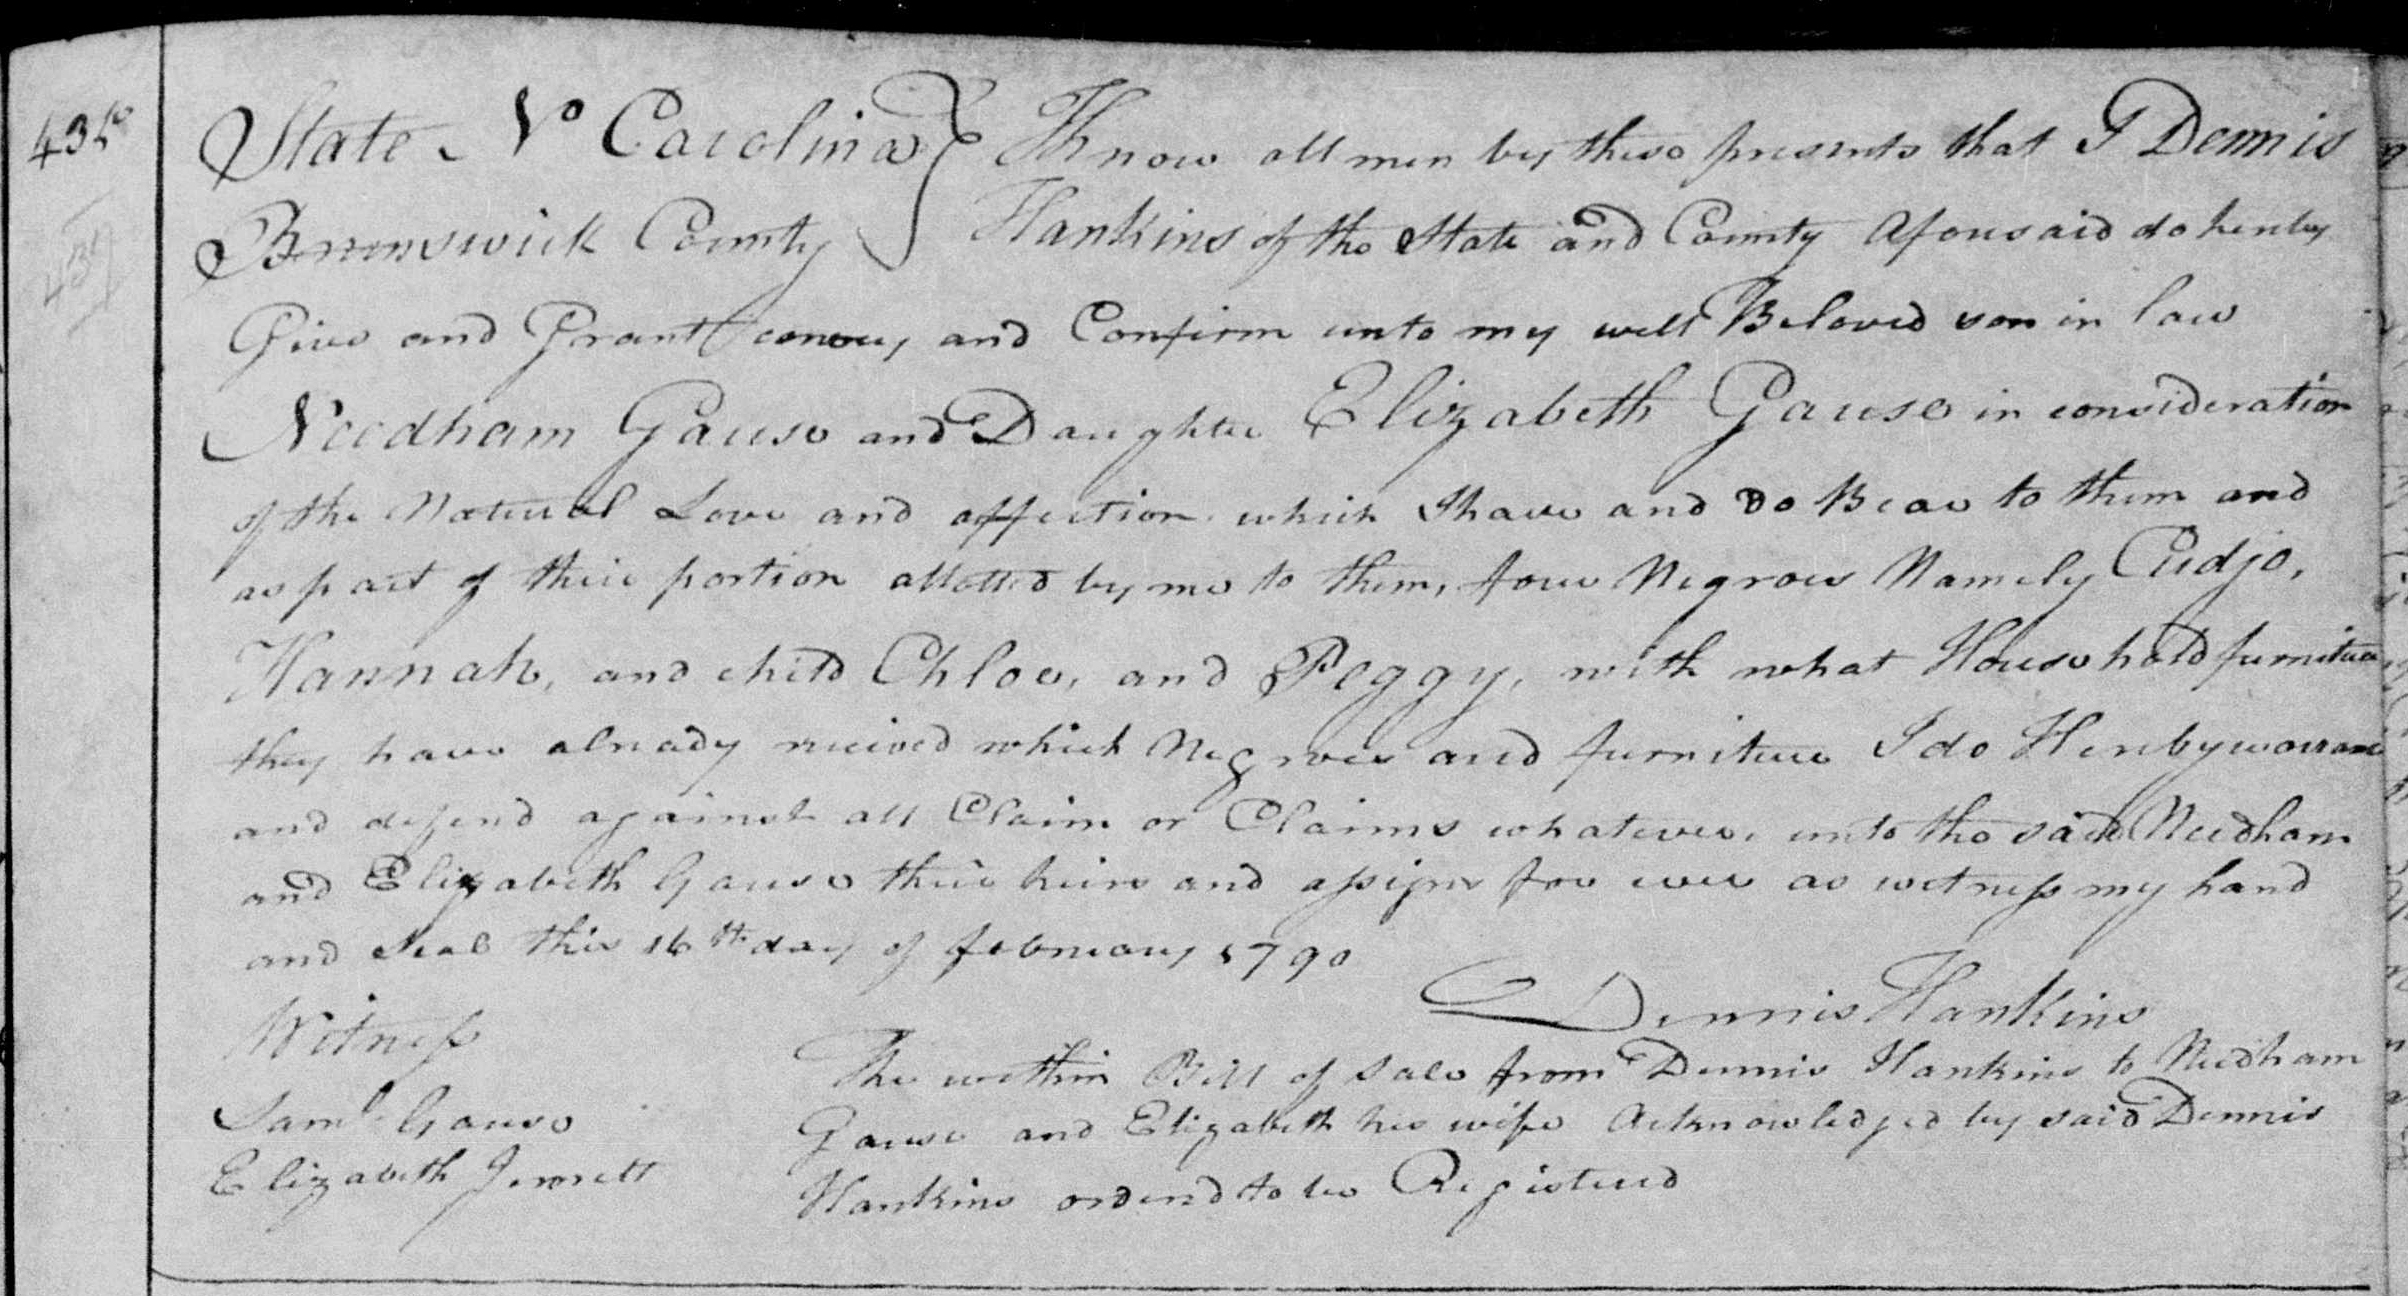 State N° Carolina } Know all men by these presents that I Dennis
Brunswick County } Hankins of the State and County Aforesaid do hereby
Give and Grant convey and Confirm unto my well Beloved son in law
Needham Gause and Daughter Elizabeth Gause in consideration
of the Natural Love and affection which I have and do Bear to them and
as part of their portion allotted by me to them, four Negroes Namely Cudjo,
Hannah, and child Chloe, and Peggy, with what Household furniture
they have already received which Negroes and furniture I do Hereby warrant
and defend against all Claim or Claims whatever, unto the said Needham
and Elizabeth Gause their heirs and assigns for ever as witness my hand
and seal this 16th day of february 1790
Dennis Hankins
Witness
Saml Gause
Elizabeth
The within Bill of Sale from Dennis Hankins to Needham
Gause and Elizabeth his wife Acknowledged by said Dennis
Hankins ordered to be Registered